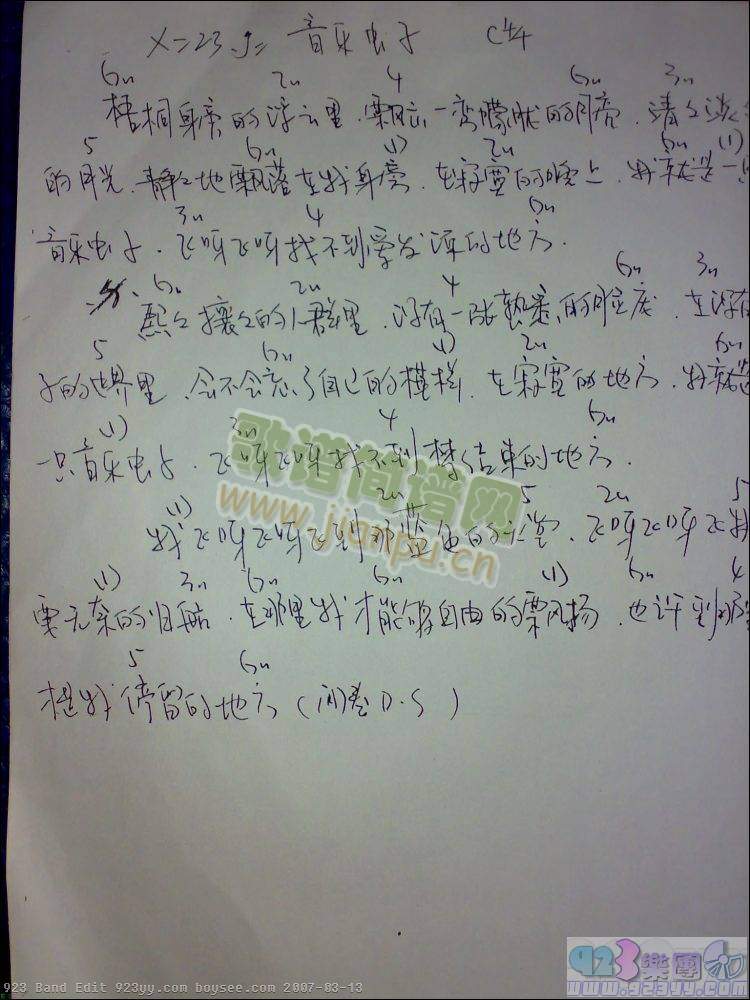 X=23 J= 音乐虫子 C 4/4
6m 2m 4 6m 3m
梧桐身旁的浮云里.飘忘一弯朦胧的月亮.清々淡々
5 6m (1) 2m 6m (1)
的月光.静々地飘落在我身旁.在寂寞的晚上.我就是一只
3m 4 6m
音乐虫子.飞呀飞呀找不到爱发源的地方.
6m 2m 4 6m 3m
熙々攘々的人群里.没有一张熟悉的脸庞.在没有
5 6m (1) 2m 6m
子的世界里.会不会忘了自己的模样.在寂寞的地方.我就是
(1) 3m 4 6m
一只音乐虫子.飞呀飞呀找不到梦结束的地方.
(1) 2m 5 2m 5
我飞呀飞呀飞到那蓝色的天堂.飞呀飞呀飞我
(1) 3m 6m 6m (1) 6m 4
要无奈的归航.在那里我才能够自由的飘扬.也许到那里
5 6m
才是我停留的地方(间奏D.S)
歌谱简谱网
www.jianpu.cn
923 Band Edit 923yy.com boysee.com 2007-03-13
923樂團
www.923yy.com